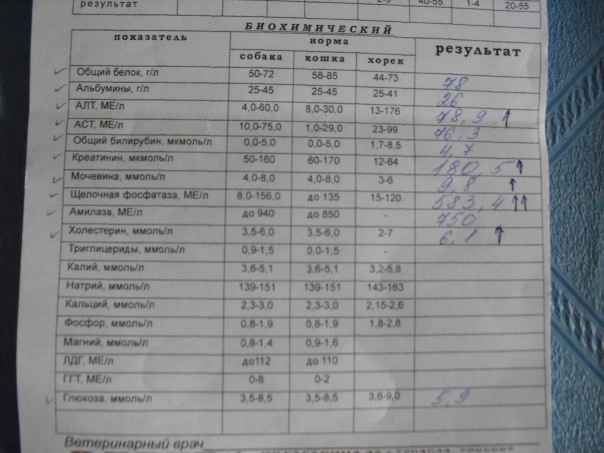 результат 2-9 40-55 1-4 20-55
БИОХИМИЧЕСКИЙ
показатель норма результат
собака кошка хорек
Общий белок, г/л 50-72 58-85 44-73 78
Альбумины, г/л 25-45 25-45 25-41 26
АЛТ, МЕ/л 4,0-60,0 8,0-30,0 13-176 78,9 ↑
АСТ, МЕ/л 10,0-75,0 1,0-29,0 23-99 46,3
Общий билирубин, мкмоль/л 0,0-5,0 0,0-5,0 1,7-8,5 4,7
Креатинин, мкмоль/л 50-160 60-170 12-64 180,5 ↑
Мочевина, ммоль/л 4,0-8,0 4,0-8,0 3-6 9,8 ↑
Щелочная фосфатаза, МЕ/л 8,0-156,0 до 135 15-120 583,4 ↑↑
Амилаза, МЕ/л до 940 до 850 - 750
Холестерин, ммоль/л 3,5-6,0 3,5-6,0 2-7 6,1 ↑
Триглицериды, ммоль/л 0,9-1,5 0,0-1,5 -
Калий, ммоль/л 3,6-5,1 3,6-5,1 3,2-5,8
Натрий, ммоль/л 139-151 139-151 143-163
Кальций, ммоль/л 2,3-3,0 2,3-3,0 2,15-2,6
Фосфор, ммоль/л 0,8-1,9 0,8-1,9 1,8-2,8
Магний, ммоль/л 0,8-1,4 0,9-1,6
ЛДГ, МЕ/л до112 до 110
ГГТ, МЕ/л 0-8 0-2
Глюкоза, ммоль/л 3,5-8,5 3,5-8,5 3,6-9,0 5,9
Ветеринарный врач